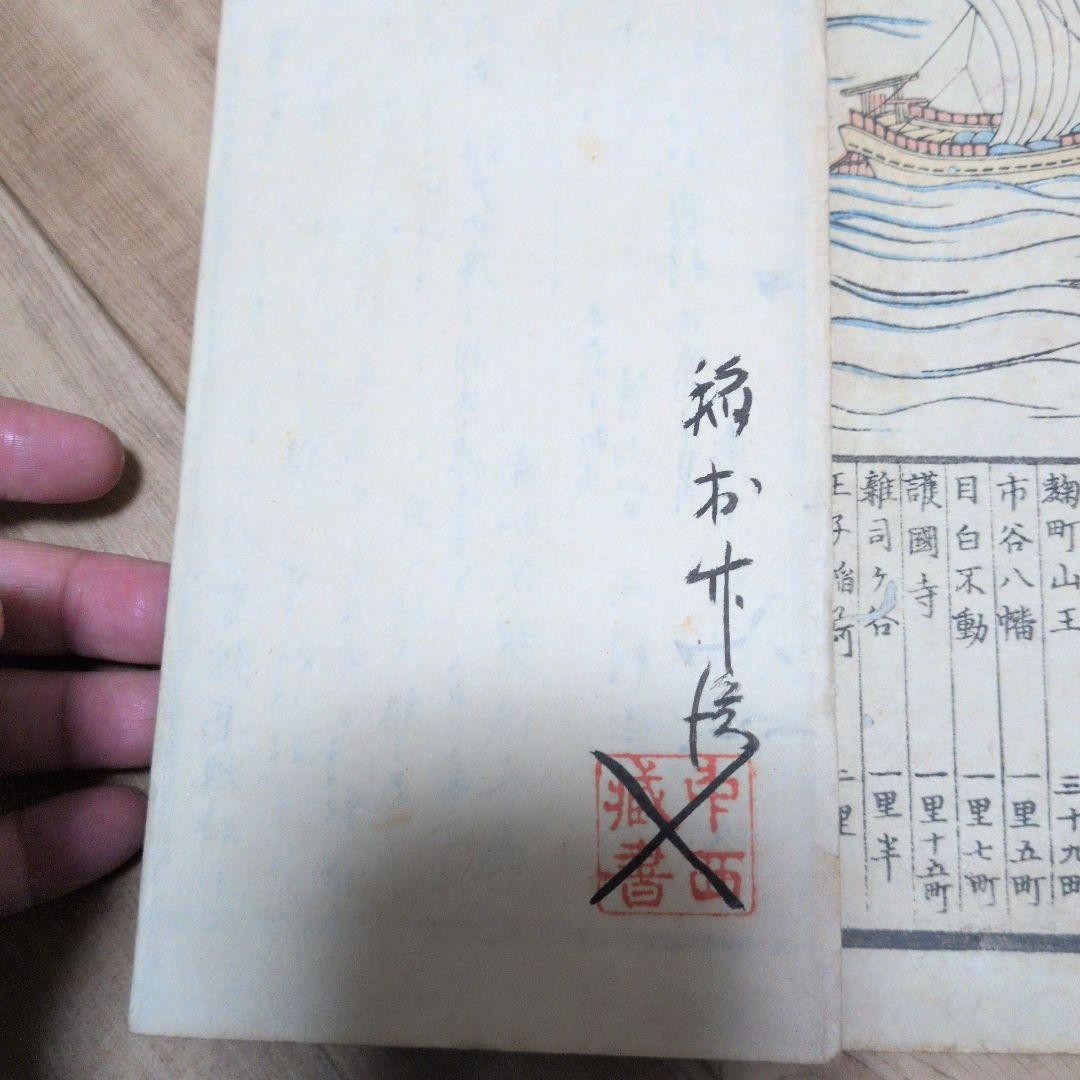 麹町山王 三十九町
市谷八幡 一里五町
目白不動 一里七町
護國寺 一里十五町
雜司ヶ谷 一里半
王子稲荷 二里
稲
中西
藏書